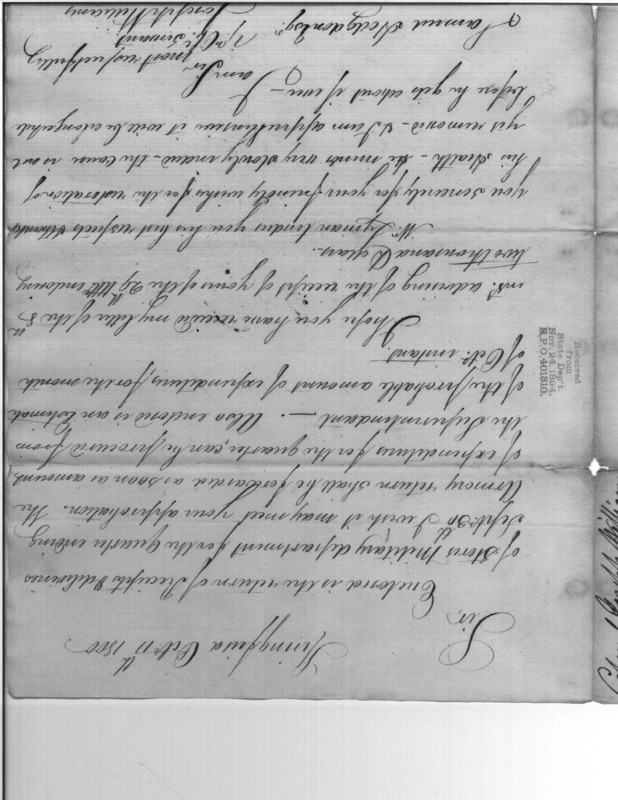 Springfield Octr. 11th 1800
Sir,
Enclosed is the return of Receipts & deliveries
of Stores Military department for the quarter ending
Septr. 30th I wish it may meet your approbation. The
Armory return shall be forwarded as soon as amount,
of expenditures for the quarter, can be procured from
the Superintendant. — Also enclosed is an Estimate
of the probable amount of expenditures, for the month
of Octr. instant.
I hope you have received my letter of the 8th
inst. advising of the receipt of yours of the 29th Ulto. enclosing
two thousand Dollars.
Mr. Lyman tenders you his best respects & thanks
you sincerely for your friendly wishes for the restoration of
his health — he mends very slowly indeed — the cause is not
yet removed — & I am apprehensive it will be a long while
before he gets about if ever — I
am Sir
most respectfully
Yr. Ob. Servant
Joseph Williams
Samuel Hodgdon Esqr.
Received
from
State Dep't.
Nov. 24, 1894.
R.P.O. 401810.
Joseph Williams